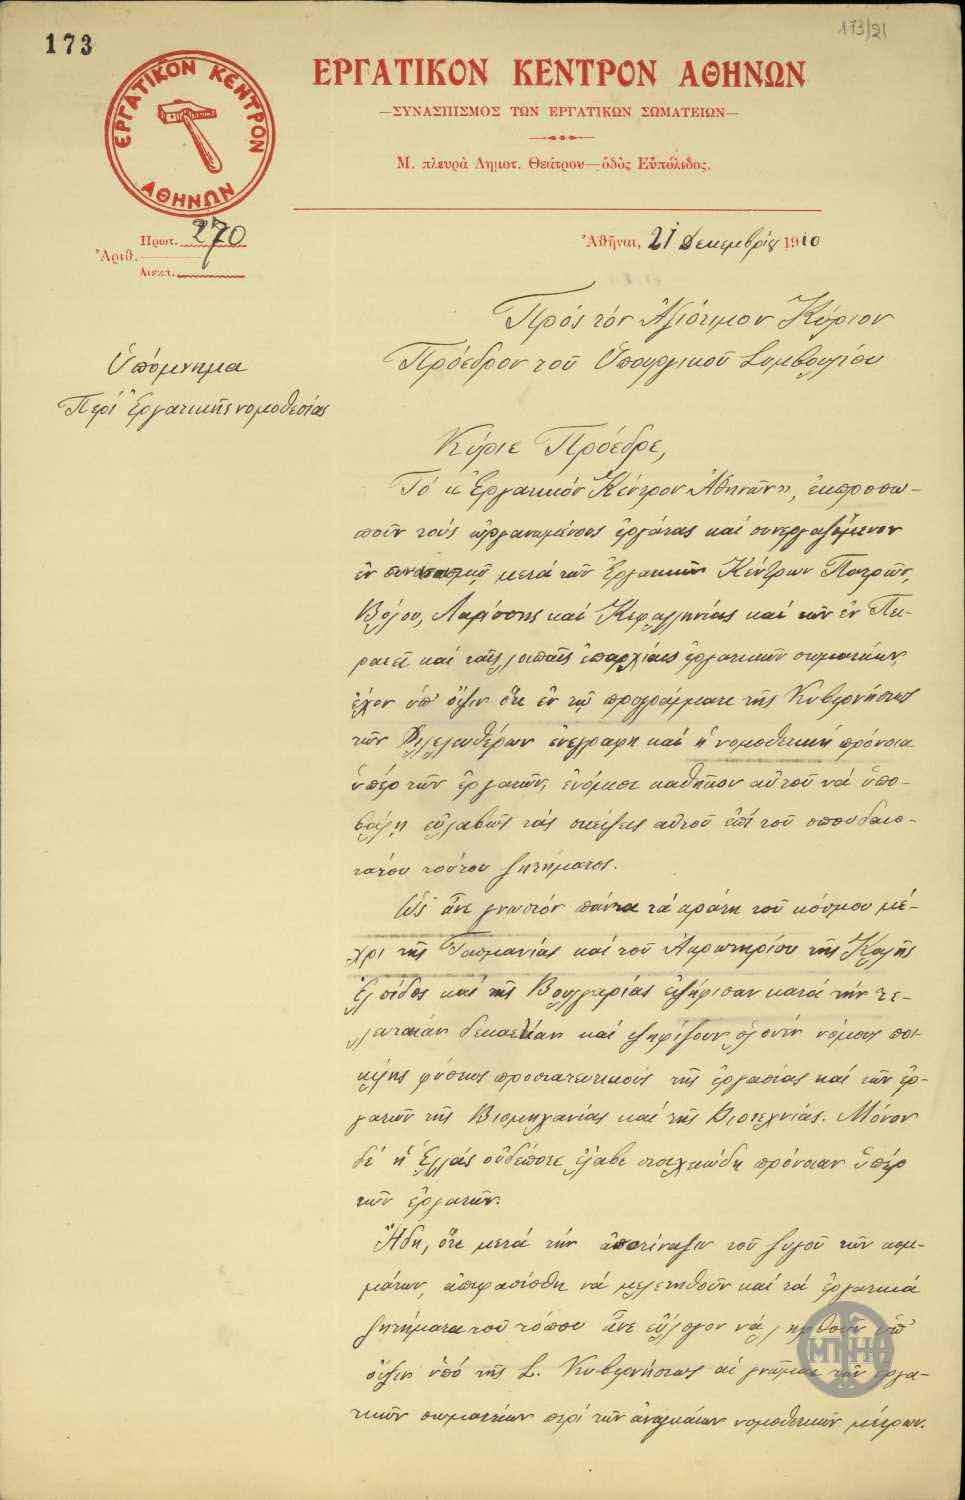 173
173/21
ΕΡΓΑΤΙΚΟΝ ΚΕΝΤΡΟΝ
ΑΘΗΝΩΝ
ΕΡΓΑΤΙΚΟΝ ΚΕΝΤΡΟΝ ΑΘΗΝΩΝ
—ΣΥΝΑΣΠΙΣΜΟΣ ΤΩΝ ΕΡΓΑΤΙΚΩΝ ΣΩΜΑΤΕΙΩΝ—
Μ. πλευρὰ Δημοτ. Θεάτρου—ὁδὸς Εὐπόλιδος.
Πρωτ. 270
Ἀριθ.
Διεκπ.
Ἀθῆναι, 21 Δεκεμβρίου 1910
Πρός τόν Ἀξιότιμον Κύριον
Πρόεδρον τοῦ Ὑπουργικοῦ Συμβουλίου
Ὑπόμνημα
Περί Ἐργατικῆς νομοθεσίας
Κύριε Πρόεδρε,
Τό «Ἐργατικόν Κέντρον Ἀθηνῶν», ἐκπροσω-
ποῦν τούς ὠργανωμένους ἐργάτας καί συνεργαζόμενον
ἐν συνασπισμῷ μετά τῶν Ἐργατικῶν Κέντρων Πατρῶν,
Βόλου, Λαρίσσης καί Κεφαλληνίας καί τῶν ἐν Πει-
ραιεῖ καί ταῖς λοιπαῖς ἐπαρχίαις ἐργατικῶν σωματείων,
ἔχον ὑπ' ὄψιν ὅτι ἐν τῷ προγράμματι τῆς Κυβερνήσεως
τῶν Φιλελευθέρων ἐνεγράφη καί ἡ νομοθετική πρόνοια
ὑπέρ τῶν ἐργατῶν, ἐνόμισε καθῆκον αὐτοῦ νά ὑπο-
βάλῃ εὐλαβῶς τάς σκέψεις αὐτοῦ ἐπί τοῦ σπουδαιο-
τάτου τούτου ζητήματος.
Ὡς εἶνε γνωστόν πάντα τά κράτη τοῦ κόσμου μέ-
χρι τῆς Τασμανίας καί τοῦ Ἀκρωτηρίου τῆς Καλῆς
Ἐλπίδος καί τῆς Βουλγαρίας ἐψήφισαν κατά τήν τε-
λευταίαν δεκαετίαν καί ψηφίζουν ὁλονέν νόμους ποι-
κίλης φύσεως προστατευτικούς τῆς ἐργασίας καί τῶν ἐρ-
γατῶν τῆς Βιομηχανίας καί τῆς Βιοτεχνίας. Μόνον
δέ ἡ Ἑλλάς οὐδέποτε ἔλαβε στοιχειώδη πρόνοιαν ὑπέρ
τῶν ἐργατῶν.
Ἤδη, ὅτε μετά τήν ἀποτίναξιν τοῦ ζυγοῦ τῶν κομ-
μάτων, ἀπεφασίσθη νά μελετηθοῦν καί τά ἐργατικά
ζητήματα τοῦ τόπου εἶνε εὔλογον νά ληφθοῦν ὑπ'
ὄψιν ὑπό τῆς Σ. Κυβερνήσεως αἱ γνῶμαι τῶν ἐργα-
τικῶν σωματείων περί τῶν ἀναγκαίων νομοθετικῶν μέτρων.
ΜΠΗΘ